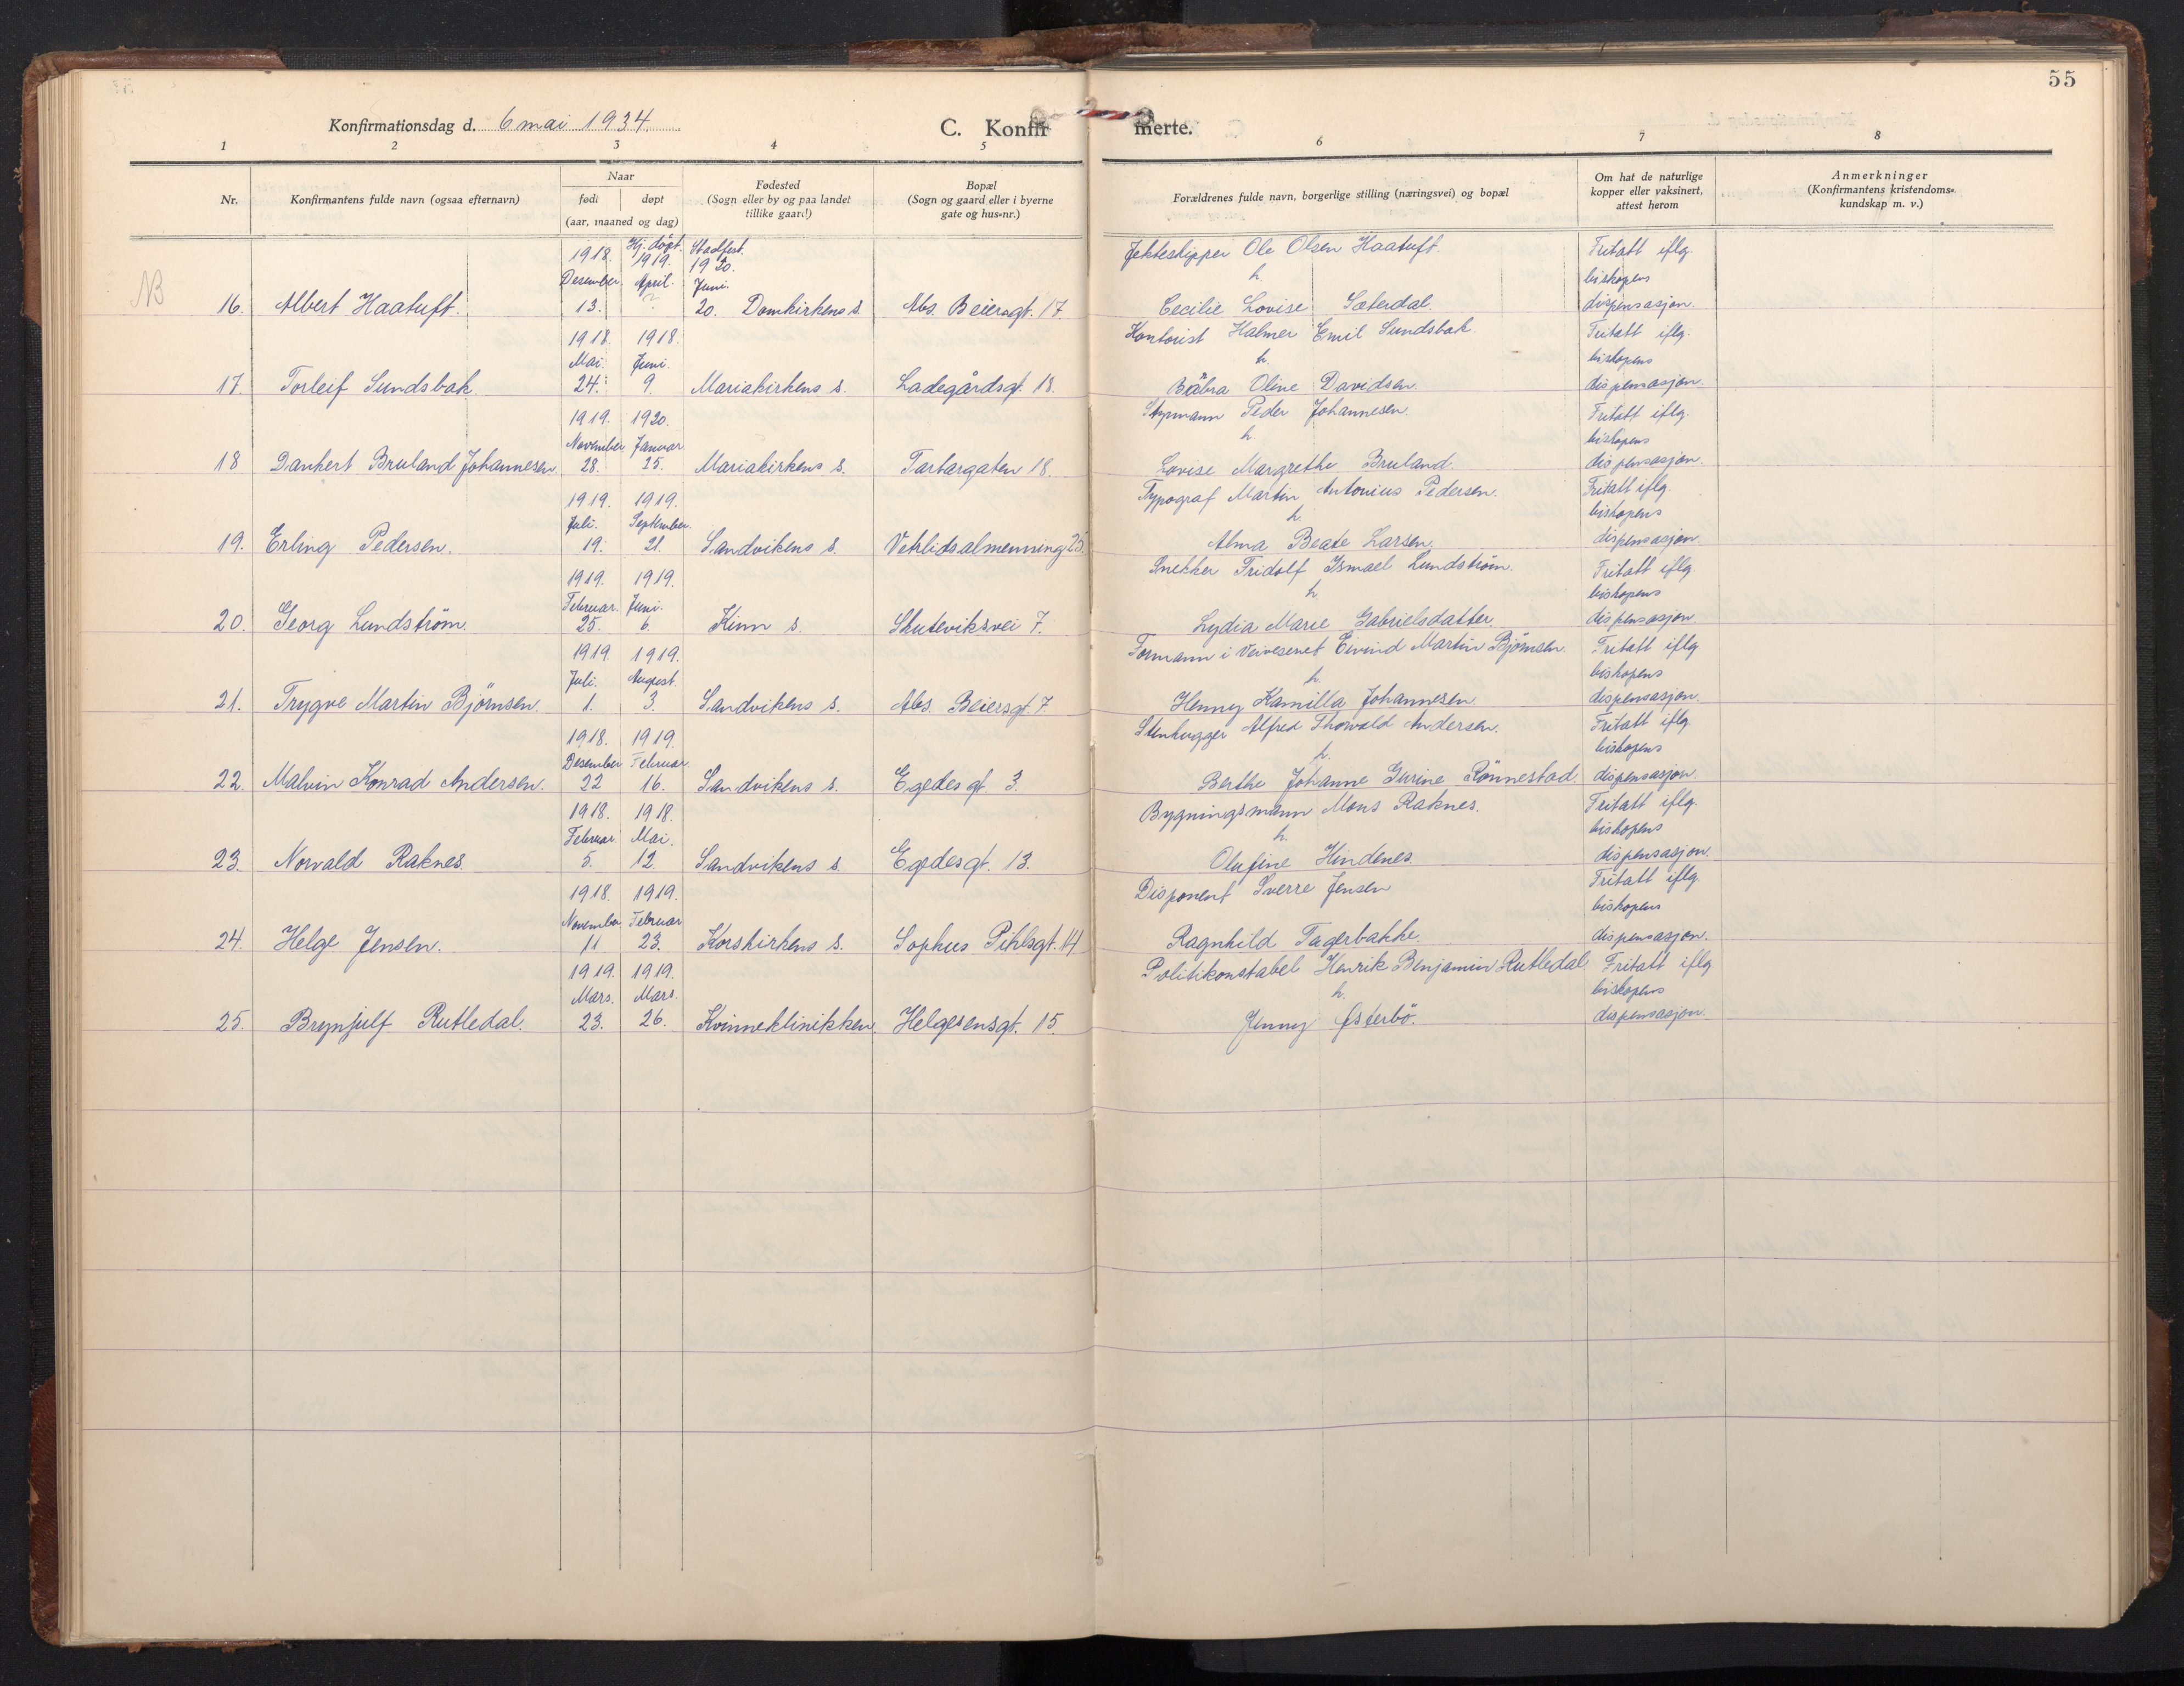 55
Konfirmationsdag d. 6 mai 1934
C. Konfirmerte.
1 2 3 4 5 6 7 8
Nr.
Konfirmantens fulde navn (ogsaa efternavn)
Naar
født
døpt
(aar, maaned og dag)
Fødested
(Sogn eller by og paa landet
tillike gaard)
Bopæl
(Sogn og gaard eller i byerne
gate og hus-nr.)
Forældrenes fulde navn, borgerlige stilling (næringsvei) og bopæl
Om hat de naturlige
kopper eller vaksinert,
attest herom
Anmerkninger
(Konfirmantens kristendoms-
kundskap m. v.)
1918. Hj. døpt. Stadfest. Jekteskipper Ole Olsen Haatuft. Fritatt iflg.
1919. 1920.
Desember April. Juni. h. biskopens
NB 16. Albert Haatuft. 13. ? 20. Domkirkens s. Abs. Beiersgt. 17. Cecilie Lovise Sæterdal. dispensasjon.
1918. 1918. Kontorist Halmer Emil Sundsbak. Fritatt iflg.
Mai. Juni. h. biskopens
17. Torleif Sundsbak. 24. 9. Mariakirkens s. Ladegårdsgt. 18. Bäbra Oline Davidsen. dispensasjon.
1919. 1920. Styrmann Peder Johannesen. Fritatt iflg.
November Januar h. biskopens
18 Dankert Bruland Johannesen. 28. 25. Mariakirkens s. Tartargaten 18. Lovise Margrethe Bruland. dispensasjon.
1919. 1919. Typograf Martin Antonius Pedersen. Fritatt iflg.
Juli. September. h. biskopens
19. Erling Pedersen. 19. 21. Sandvikens s. Vetrlidsalmenning 25. Alma Beate Larsen. dispensasjon.
1919. 1919. Snekker Fridolf Ismael Lundström. Fritatt iflg.
Februar. Juni. h. biskopens
20. Georg Lundström. 25. 6. Kinn s. Skuteviksvei 7. Lydia Marie Gabrielsdatter. dispensasjon.
1919. 1919. Formann i Veivesenet Eivind Martin Björnsen. Fritatt iflg
Juli. August. h. biskopens
21. Trygve Martin Björnsen. 1. 3. Sandvikens s. Abs. Beiersgt. 7. Henny Kamilla Johannesen. dispensasjon.
1918. 1919. Stenhugger Alfred Thorvald Andersen. Fritatt iflg.
Desember Februar. h. biskopens
22. Malvin Konrad Andersen. 22 16. Sandvikens s. Egedes gt. 3. Berthe Johanne Gurine Rönnestad. dispensasjon.
1918. 1918. Bygningsmann Mons Raknes. Fritatt iflg.
Februar Mai. h. biskopens
23. Norvald Raknes 5. 12. Sandvikens s. Egedesgt. 13. Olufine Hindenes. dispensasjon.
1918. 1919. Disponent Sverre Jensen Fritatt iflg.
November Februar biskopens
24. Helge Jensen. 11 23. Korskirkens s. Sophus Pihlsgt. 14 Ragnhild Fagerbakke. dispensasjon.
1919. 1919. Politikonstabel Henrik Benjamin Rutledal. Fritatt iflg
Mars. Mars. h. biskopens
25. Brynjulf Rutledal. 23. 26. Kvinneklinikken. Helgesensgt. 15. Jenny Østerbö. dispensasjon.